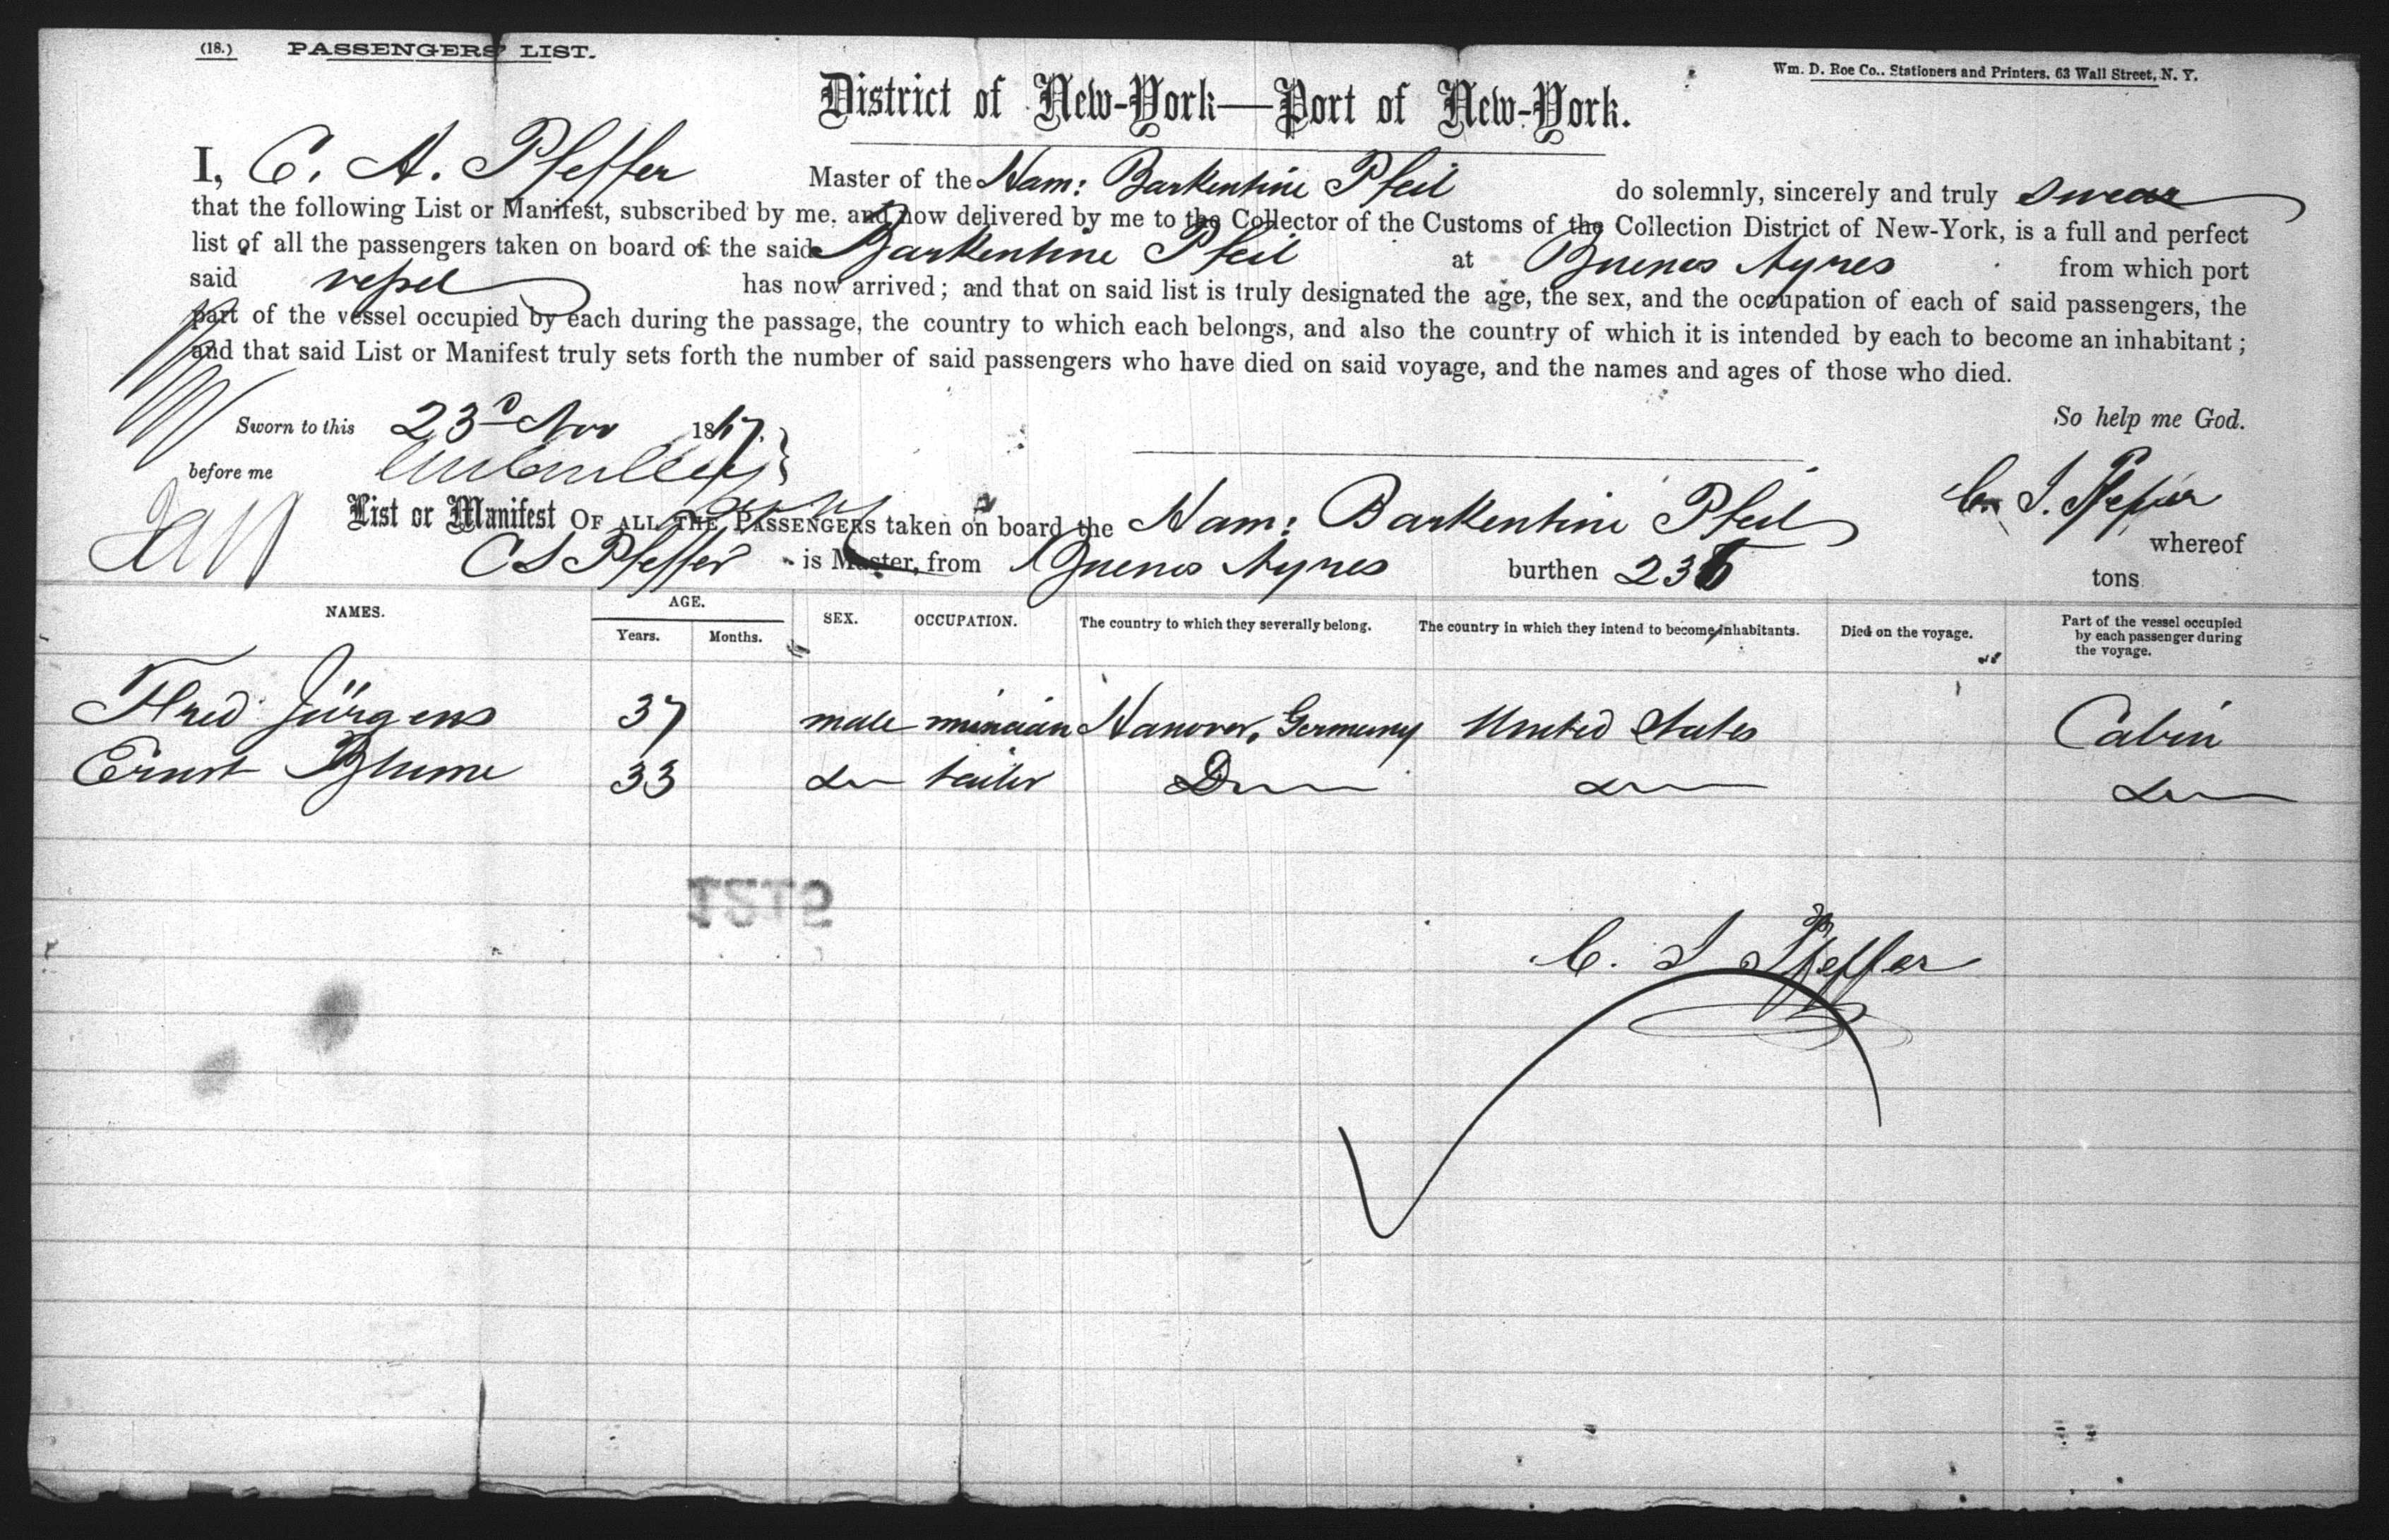 (18.) PASSENGERS' LIST.
Wm. D. Roe Co., Stationers and Printers, 63 Wall Street, N. Y.
District of New-York—Port of New-York.
I, C. A. Pfeffer Master of the Ham: Barkentine Pfeil do solemnly, sincerely and truly swear
that the following List or Manifest, subscribed by me, and now delivered by me to the Collector of the Customs of the Collection District of New-York, is a full and perfect
list of all the passengers taken on board of the said Barkentine Pfeil at Buenos Ayres from which port
said vessel has now arrived; and that on said list is truly designated the age, the sex, and the occupation of each of said passengers, the
part of the vessel occupied by each during the passage, the country to which each belongs, and also the country of which it is intended by each to become an inhabitant;
and that said List or Manifest truly sets forth the number of said passengers who have died on said voyage, and the names and ages of those who died.
Sworn to this 23d Nov 1867. So help me God.
before me
C. J. Pfeffer
List or Manifest OF ALL THE PASSENGERS taken on board the Ham: Barkentine Pfeil whereof
C J Pfeffer is Master, from Buenos Ayres burthen 236 tons
NAMES. AGE. Years. Months. SEX. OCCUPATION. The country to which they severally belong. The country in which they intend to become inhabitants. Died on the voyage. Part of the vessel occupied by each passenger during the voyage.
Fred Jürgens 37 male musician Hanover, Germany United States Cabin
Ernst Blume 33 do tailor Do do do
1215
C. J Pfeffer